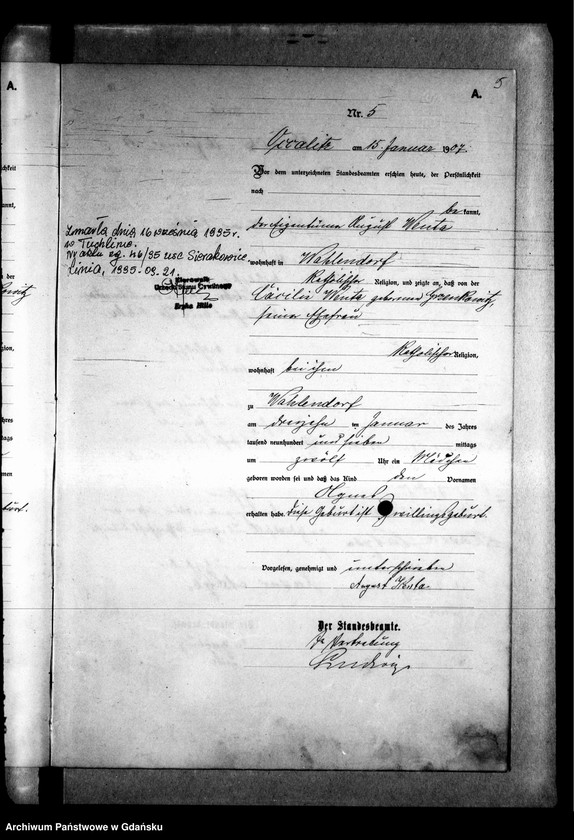 A.
A.
5
Nr. 5
am 15. Januar 1907.
Vor dem unterzeichneten Standesbeamten erschien heute, der Persönlichkeit
nach
bekannt,
der Eigentümer August Wenta
Zmarła dnia 16 września 1935 r.
w Tuchlinie.
Nr aktu zg. 46/35 USC Sierakowice
Linia, 1995.08.21.
Kierownik
Urzędu Stanu Cywilnego
wohnhaft in Wahlendorf
katholischer Religion, und zeigte an, daß von der
Cäcilie Wenta geborenen
seiner Ehefrau
katholischer Religion,
wohnhaft bei ihm
zu Wahlendorf
am dreizehn ten Januar des Jahres
tausend neunhundert und sieben mittags
um zwölf Uhr ein Mädchen
geboren worden sei und daß das Kind den Vornamen
erhalten habe. Diese Geburt ist Zwillingsgeburt.
Vorgelesen, genehmigt und unterschrieben
August Wenta
Der Standesbeamte.
In Vertretung
Archiwum Państwowe w Gdańsku